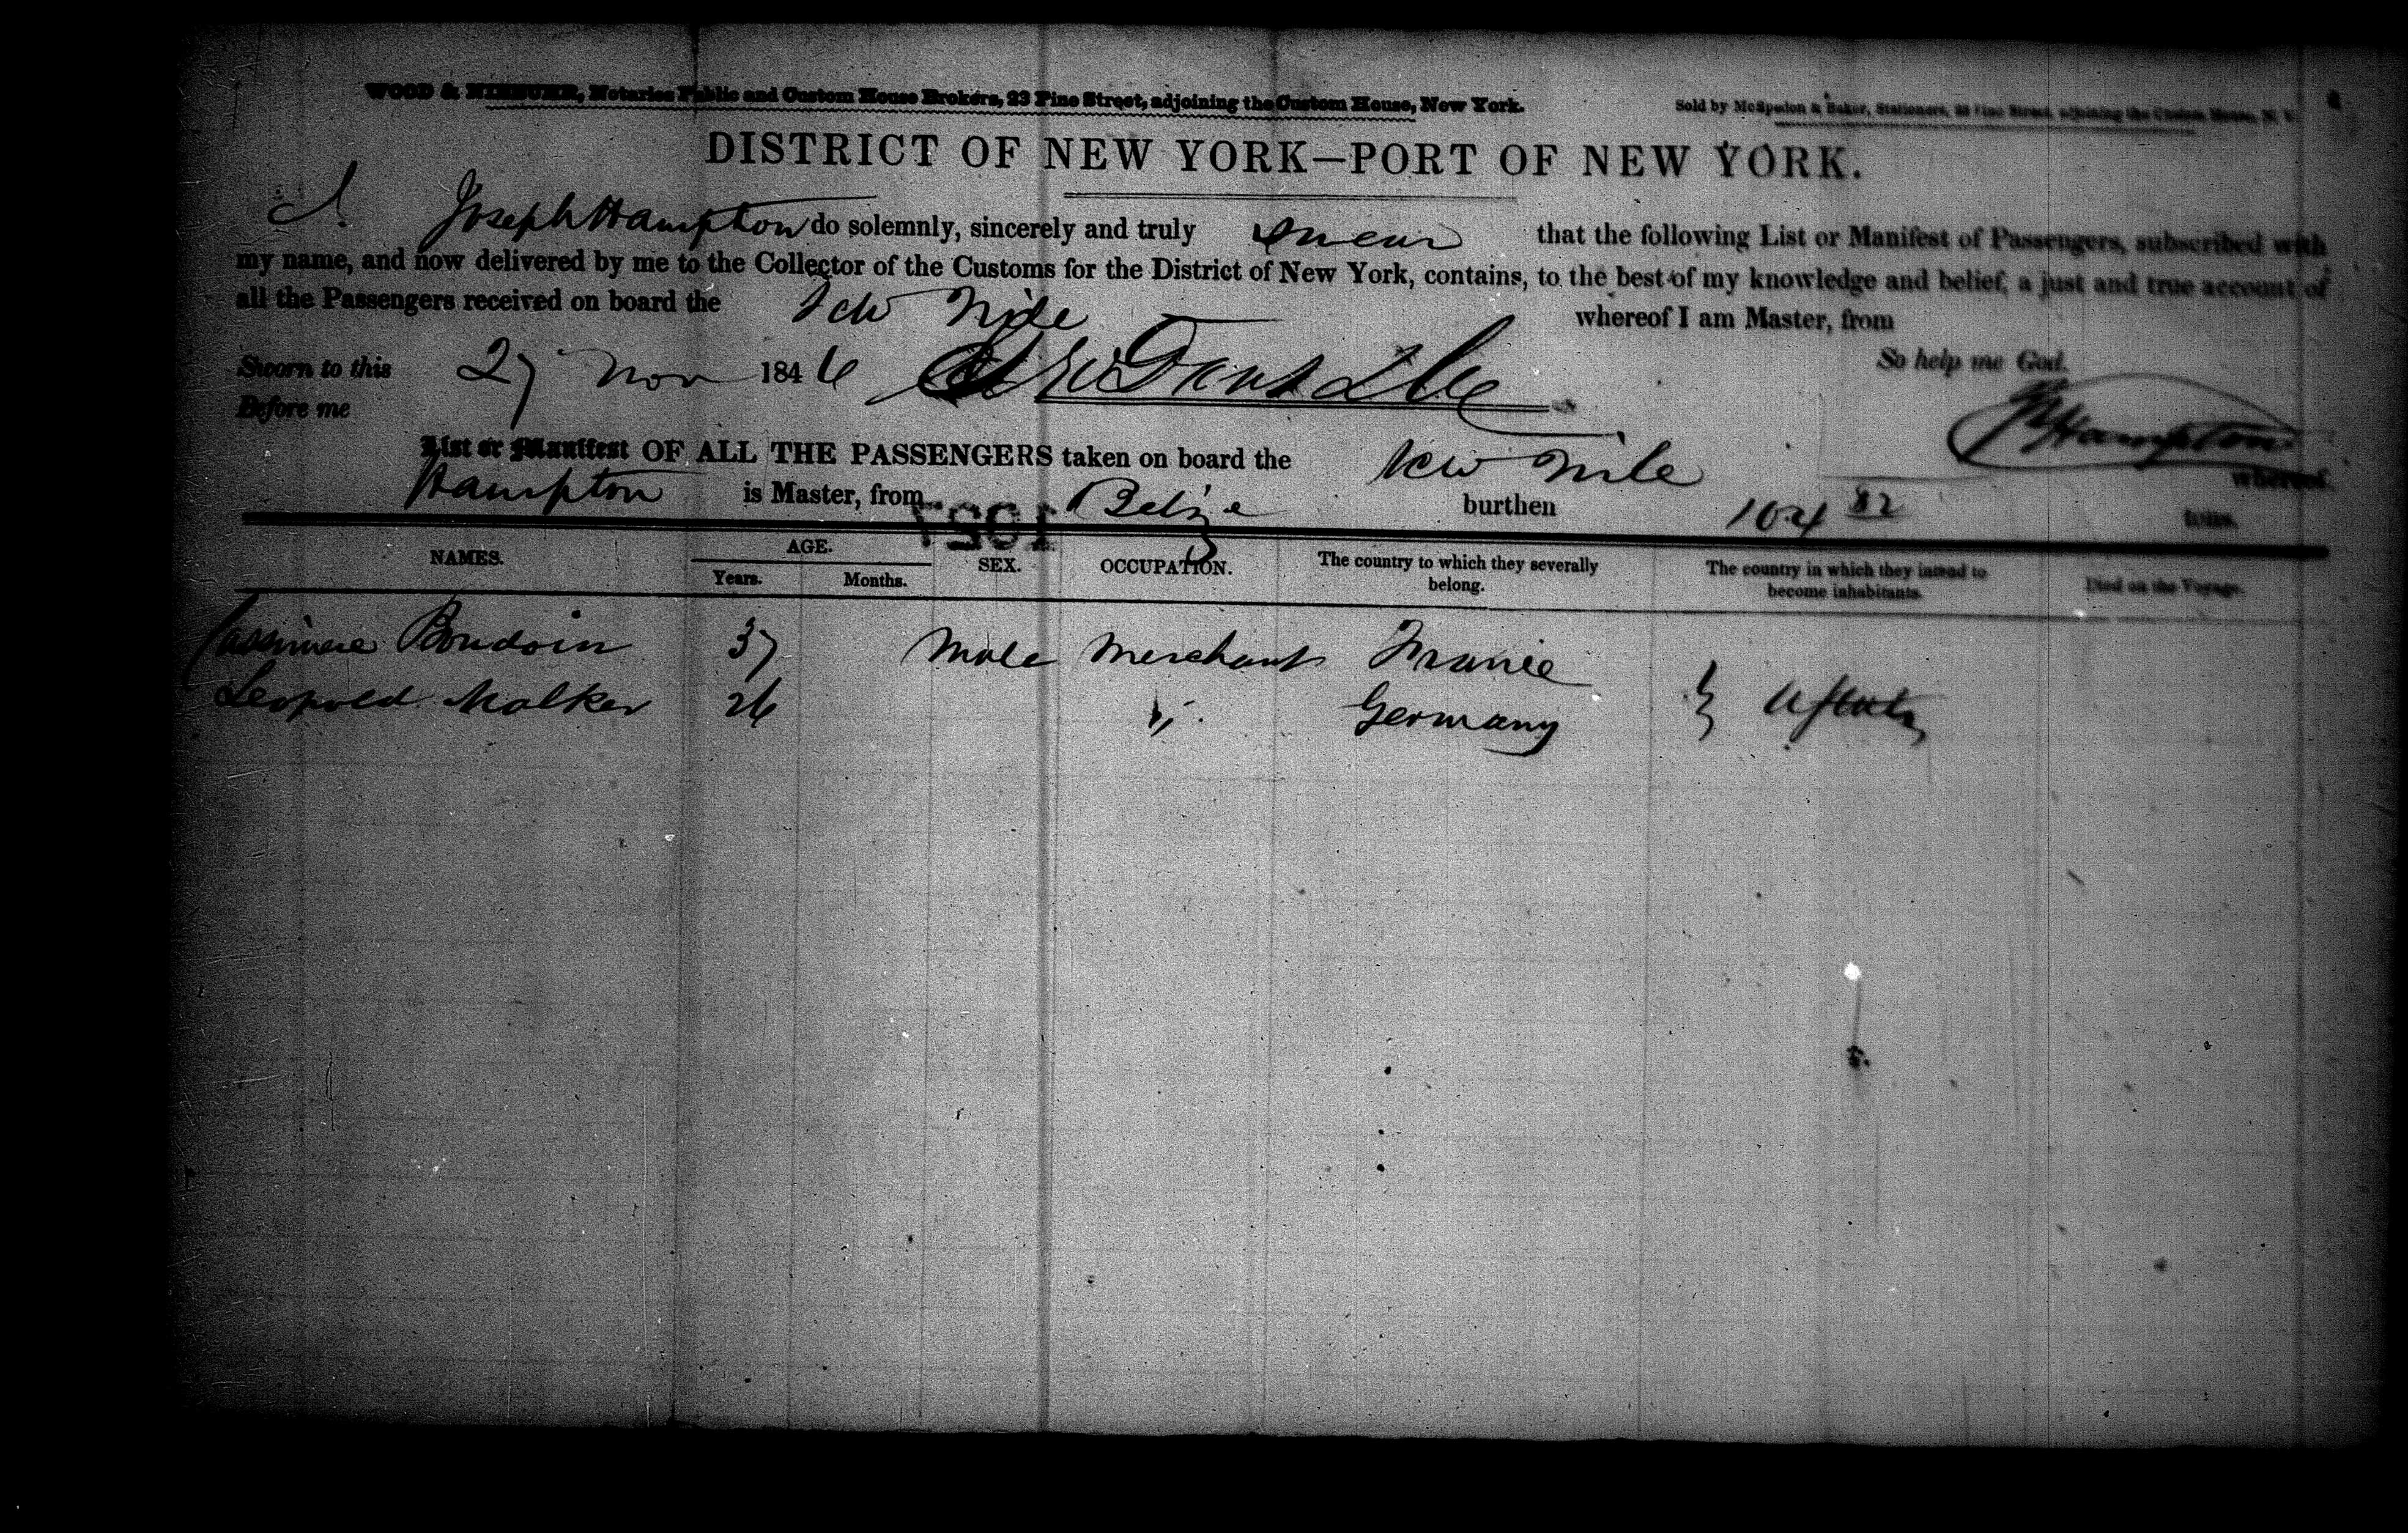 WOOD & NIEBUHR, Notaries Public and Custom House Brokers, 23 Pine Street, adjoining the Custom House, New York.
Sold by McSpedon & Baker, Stationers, 25 Pine Street, adjoining the Custom House, N. Y.
DISTRICT OF NEW YORK—PORT OF NEW YORK.
I Joseph Hampton do solemnly, sincerely and truly swear that the following List or Manifest of Passengers, subscribed with
my name, and now delivered by me to the Collector of the Customs for the District of New York, contains, to the best of my knowledge and belief, a just and true account of
all the Passengers received on board the Schr Nile whereof I am Master, from
Sworn to this 27 Nov 1846 So help me God.
Before me J Hampton
List or Manifest OF ALL THE PASSENGERS taken on board the Schr Nile whereof
Hampton is Master, from Belize burthen 104 82 tons.
1051
NAMES. AGE. SEX. OCCUPATION. The country to which they severally belong. The country in which they intend to become inhabitants. Died on the Voyage.
Years. Months.
Cassimere Boudoin 37 Male Merchant France
Leopold Malker 26 " Germany } U States